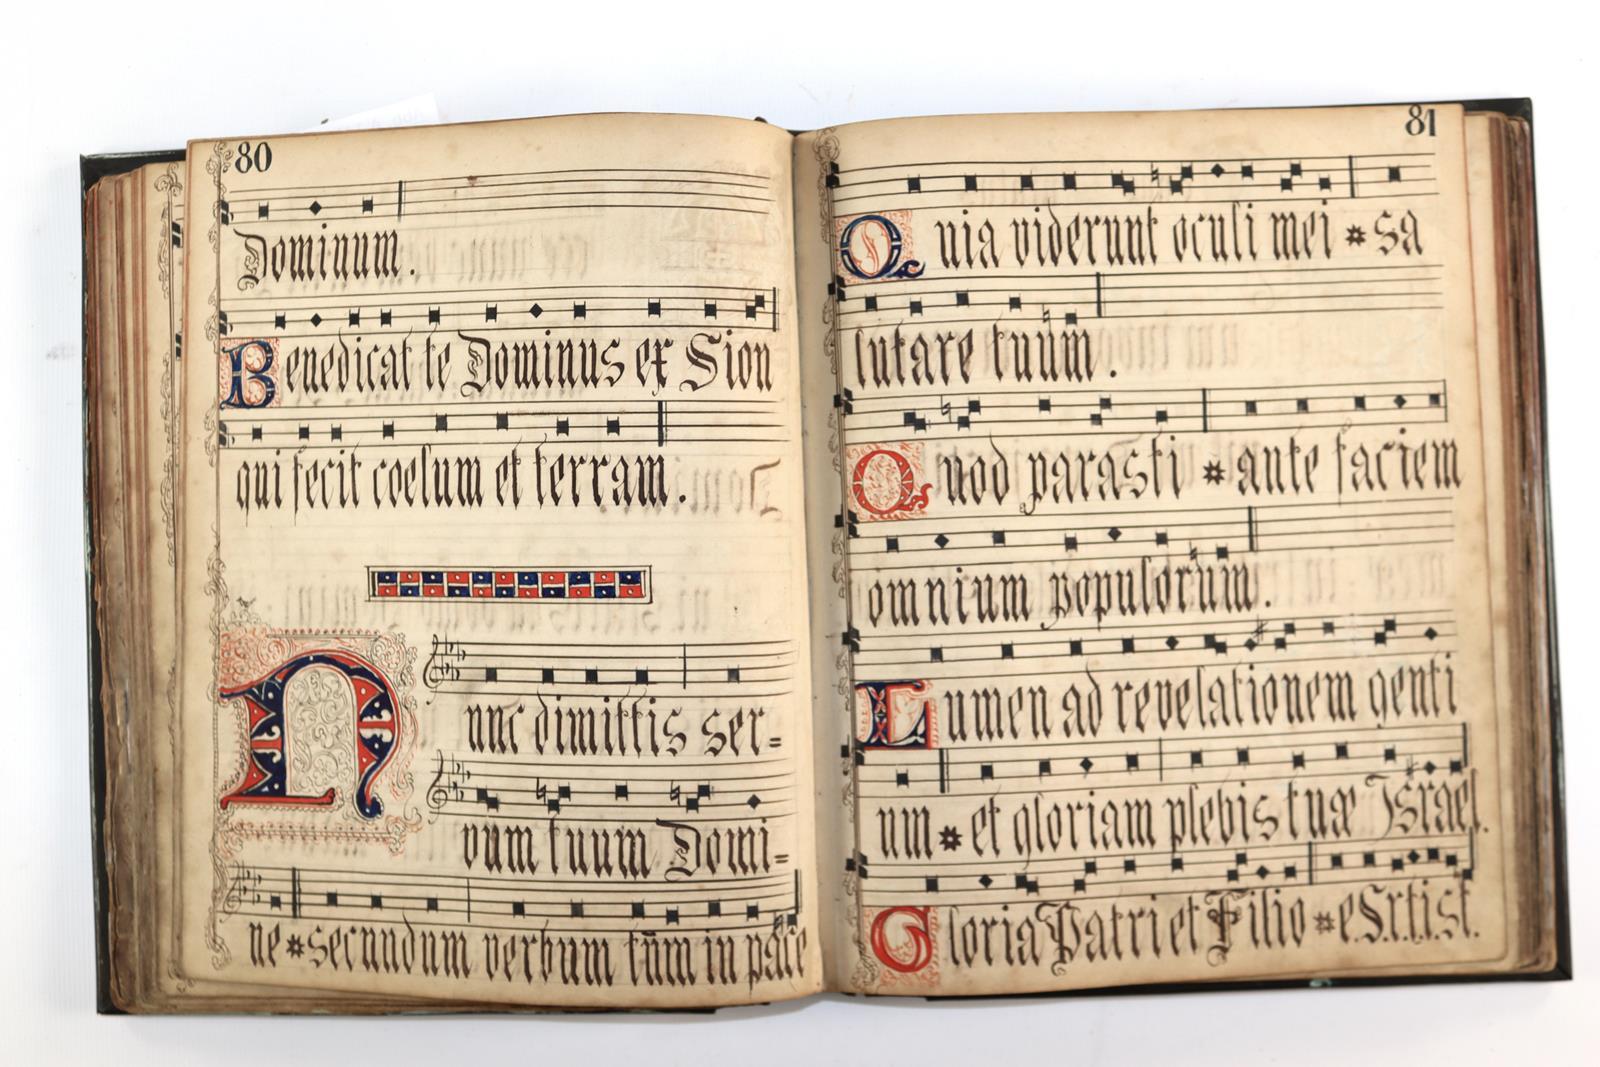 80
Dominum.
Benedicat te Dominus ex Sion
qui fecit coelum et terram.
Nunc dimittis ser=
vum tuum Domi=
ne * secundum verbum tuū̃m in pace
81
Quia viderunt oculi mei * sa
lutare tuum.
Quod parasti * ante faciem
omnium populorum.
Lumen ad revelationem genti
um * et gloriam plebis tuæ Israel.
Gloria Patri et Filio * e.S.r.t.i.s.t.